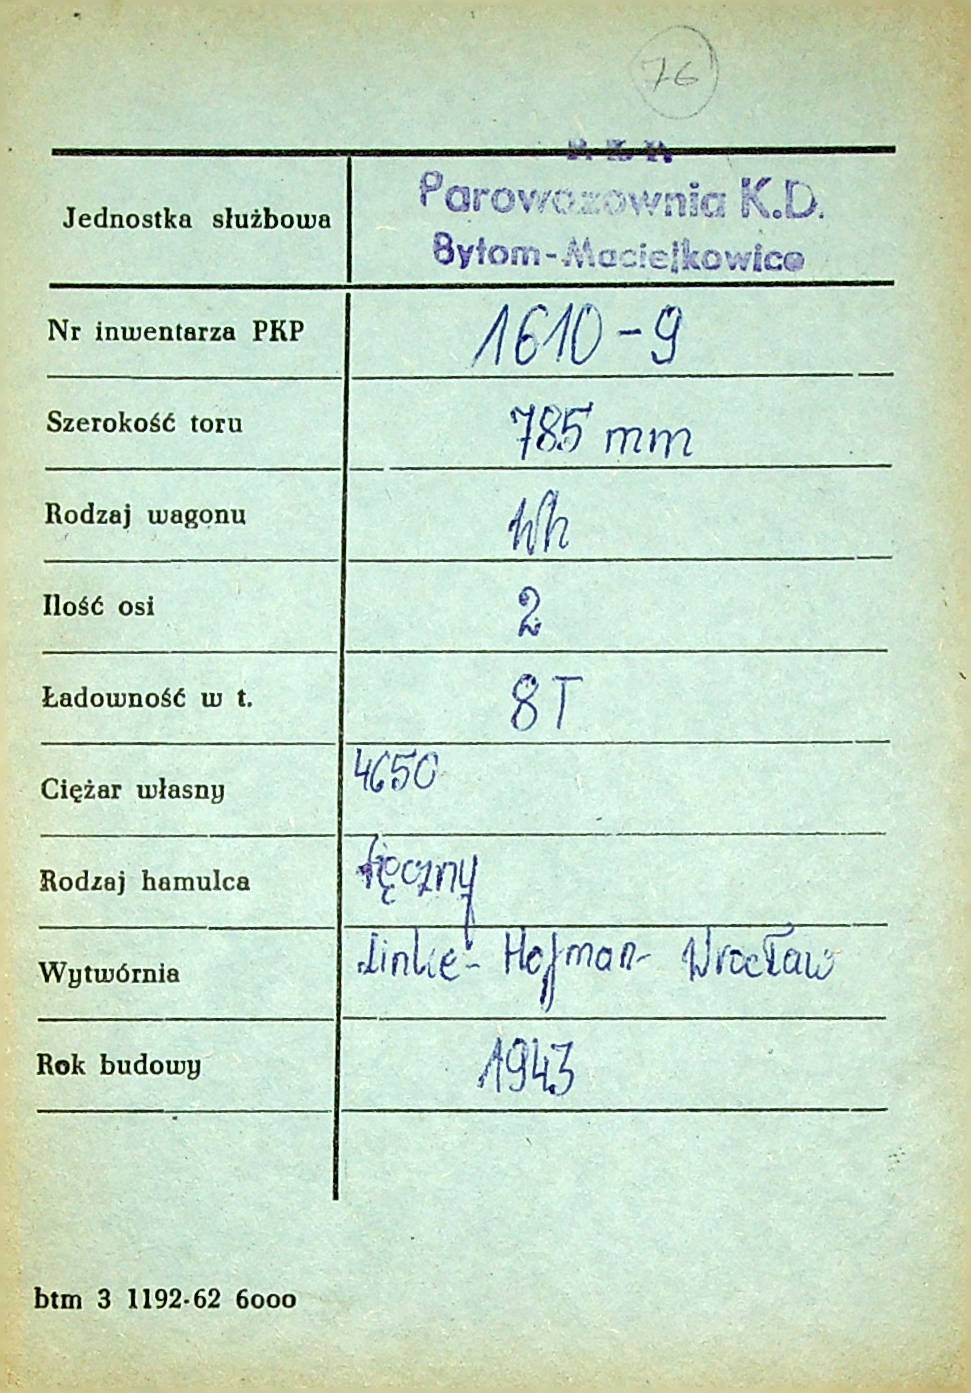 76
P. K. P.
Parowozownia K.D.
Jednostka służbowa
Bytom-Maciejkowice
Nr inwentarza PKP 1610-9
Szerokość toru 785 mm
Rodzaj wagonu
Ilość osi 2
Ładowność w t. 8T
Ciężar własny 4650
Rodzaj hamulca ręczny
Wytwórnia Linke-Hofman-Wrocław
Rok budowy 1943
btm 3 1192-62 6000